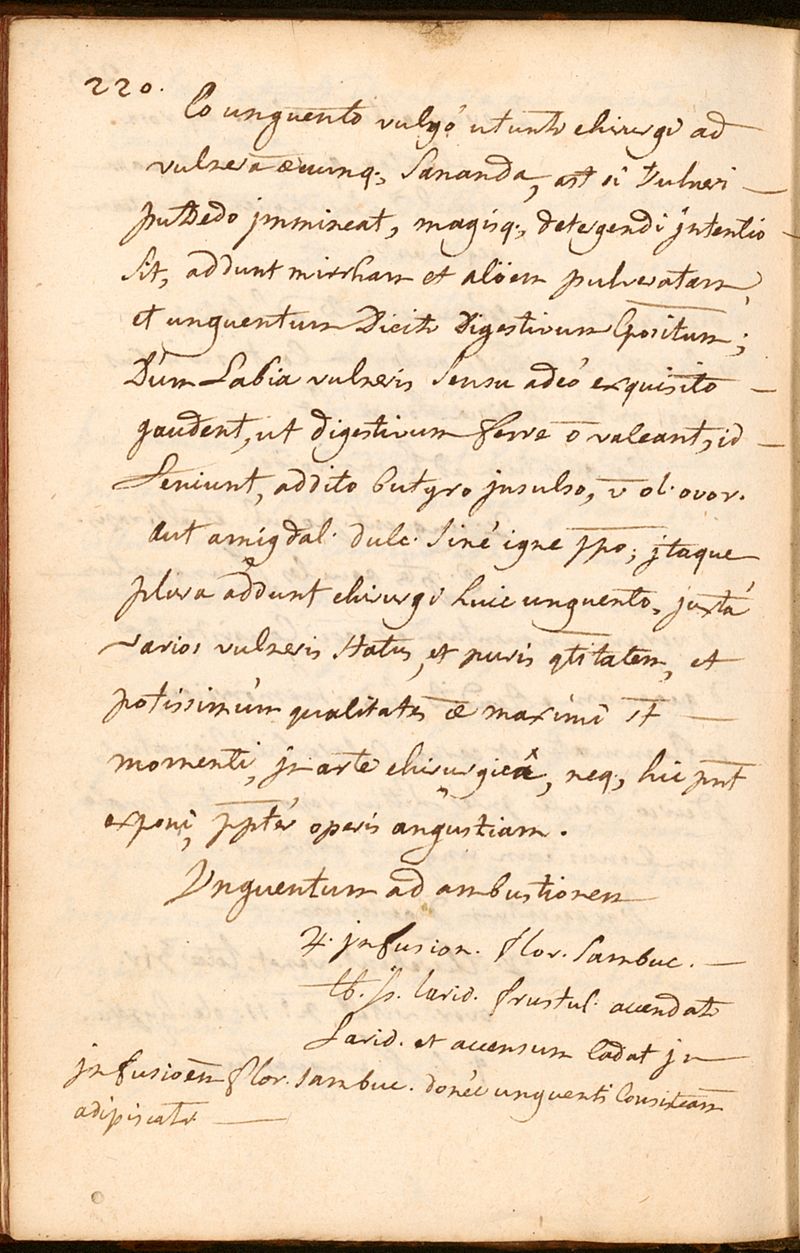 220.
Eo unguento vulgó utuntr chirurgi ad
vulnera æcunq; sananda, ast si vulneri —
putredo jmmineat, magisq; detergendi jntentio —
sit, addunt mirrham et alöem pulveratam,
et unguentum Dicitr Digestivum Cpositum;
Dúm Labia vulneris sensu adeó exquisito —
gaudent, ut digestivum ferre ō valeant, id —
Leniunt, addito butyro jnsulso, v̄ ol. ovor.
aut amigdal. dulc. siné igne ppo; jtaque
plura addunt chirurgi huic unguento, juxtá
varios vulneris status, et puris qtitatem, et
potissimúm qualitates æ maximi st —
momenti, jn arte chirurgicâ, neq; hic pnt
exponi, pptér operis angustiam.
Vnguentum ad ambustionem
♃. jnfusion. flor. sambuc. —
℔. ß. larid. frustul. accendatr
Larid. et accensum Cadat jn —
jnfusioēm flor. sambuc. donéc unguenti Consisteām
adipiscatr —